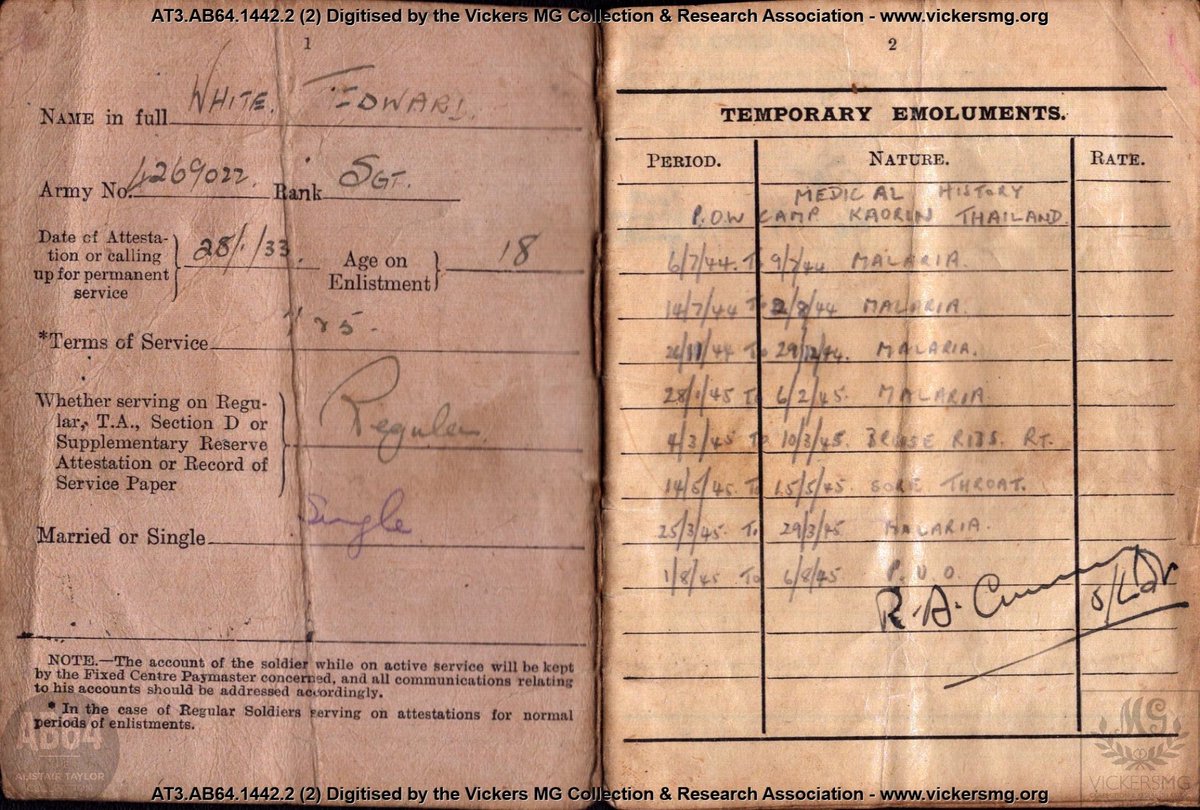 AT3.AB64.1442.2 (2) Digitised by the Vickers MG Collection & Research Association - www.vickersmg.org
1
NAME in full WHITE. EDWARD.
Army No. 4269022. Rank SGT.
Date of Attesta-
tion or calling
up for permanent
service
28/1/33.
Age on
Enlistment
18
*Terms of Service
Whether serving on Regu-
lar, T.A., Section D or
Supplementary Reserve
Attestation or Record of
Service Paper
Regular
Married or Single Single
NOTE.—The account of the soldier while on active service will be kept
by the Fixed Centre Paymaster concerned, and all communications relating
to his accounts should be addressed accordingly.
* In the case of Regular Soldiers serving on attestations for normal
periods of enlistments.
AB64
ALISTAIR TAYLOR
2
TEMPORARY EMOLUMENTS.
PERIOD. NATURE. RATE.
MEDICAL HISTORY
P.O.W CAMP KAORIN THAILAND.
6/7/44. To 9/7/44 MALARIA.
14/7/44 To 2/8/44 MALARIA.
26/11/44 To 29/12/44. MALARIA.
28/1/45 To 6/2/45 MALARIA
4/3/45 To 10/3/45. BRUISE RIBS. RT.
14/5/45. To 15/5/45 SORE THROAT.
25/3/45 To 29/3/45 MALARIA.
1/8/45 To 6/8/45 P.U.O.
R. A.
MG
VICKERSMG
AT3.AB64.1442.2 (2) Digitised by the Vickers MG Collection & Research Association - www.vickersmg.org